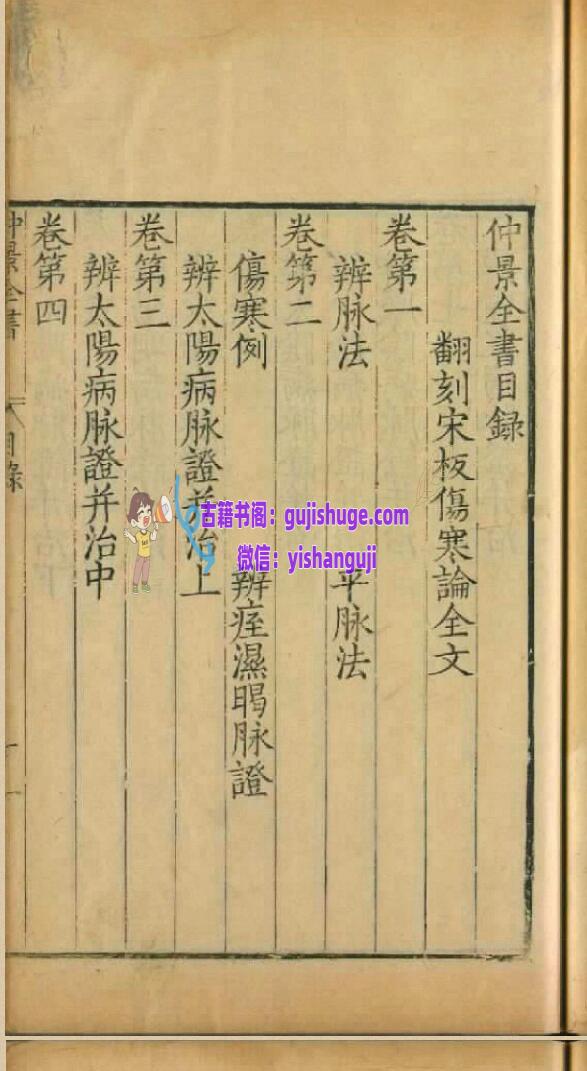 仲景全書目録
翻刻宋板傷寒論全文
卷第一
辨脉法 平脉法
卷第二
傷寒例 辨痓濕暍脉證
辨太陽病脉證并治上
卷第三
辨太陽病脉證并治中
卷第四
仲景全書 目録 一
古籍书阁：gujishuge.com
微信：yishanguji